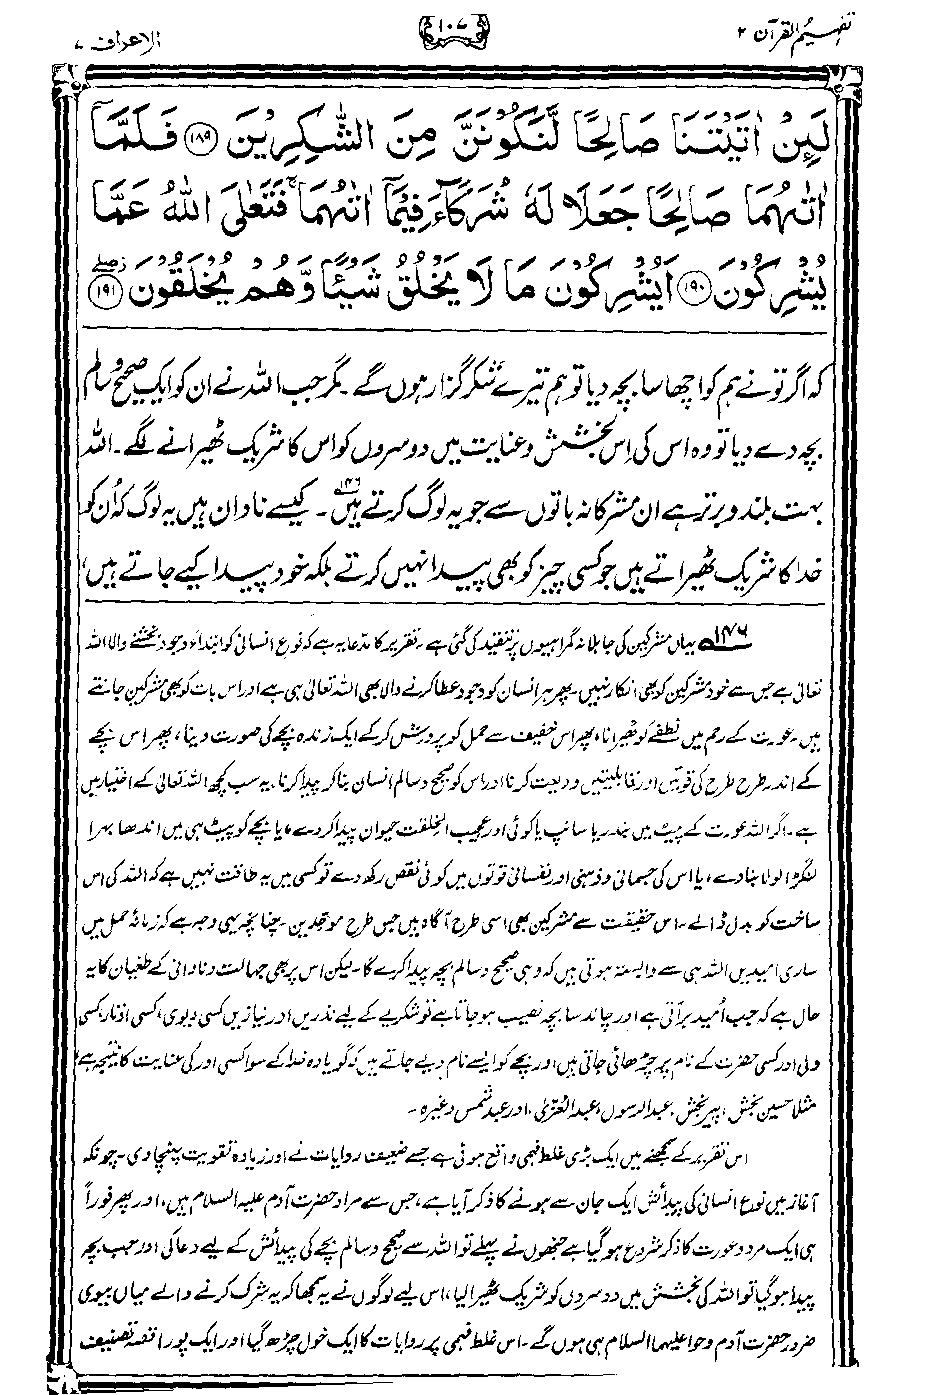 تفہیم القرآن ۲
۱۰۷
الاعراف ۷
لَئِنْ اٰتَيْتَنَا صَالِحًا لَّنَكُوْنَنَّ مِنَ الشّٰكِرِيْنَ ۝۱۸۹ فَلَمَّاۤ
اٰتٰىهُمَا صَالِحًا جَعَلَا لَهٗ شُرَكَآءَ فِيْمَاۤ اٰتٰىهُمَا ۚ فَتَعٰلَى اللّٰهُ عَمَّا
يُشْرِكُوْنَ ۝۱۹۰ اَيُشْرِكُوْنَ مَا لَا يَخْلُقُ شَيْـًٔا وَّهُمْ يُخْلَقُوْنَ ۝۱۹۱
کہ اگر تو نے ہم کو اچھا سا بچہ دیا تو ہم تیرے شکر گزار ہوں گے۔ مگر جب اللہ نے ان کو ایک صحیح و سالم
بچہ دے دیا تو وہ اس کی اِس بخشش و عنایت میں دوسروں کو اس کا شریک ٹھیرانے لگے۔ اللہ
بہت بلند و برتر ہے ان مشرکانہ باتوں سے جو یہ لوگ کرتے ہیں۱۴۶۔ کیسے نادان ہیں یہ لوگ کہ اُن کو
خدا کا شریک ٹھیراتے ہیں جو کسی چیز کو بھی پیدا نہیں کرتے بلکہ خود پیدا کیے جاتے ہیں،
۱۴۶ یہاں مشرکین کی جاہلانہ گمراہیوں پر تنقید کی گئی ہے۔ تقریر کا مدعا یہ ہے کہ نوع انسانی کو ابتداءً وجود بخشنے والا اللہ
تعالیٰ ہے جس سے خود مشرکین کو بھی انکار نہیں۔ پھر ہر انسان کو وجود عطا کرنے والا بھی اللہ تعالیٰ ہی ہے اور اس بات کو بھی مشرکین جانتے
ہیں۔ عورت کے رحم میں نطفے کو ٹھیرانا، پھر اس خفیف سے حمل کو پرورش کر کے ایک زندہ بچے کی صورت دینا، پھر اس بچے
کے اندر طرح طرح کی قوتیں اور قابلیتیں ودیعت کرنا اور اس کو صحیح و سالم انسان بنا کر پیدا کرنا، یہ سب کچھ اللہ تعالیٰ کے اختیار میں
ہے۔ اگر اللہ عورت کے پیٹ میں بندر یا سانپ یا کوئی اور عجیب الخلقت حیوان پیدا کر دے، یا بچے کو پیٹ ہی میں اندھا بہرا
لنگڑا لولا بنا دے، یا اس کی جسمانی و ذہنی اور نفسانی قوتوں میں کوئی نقص رکھ دے تو کسی میں یہ طاقت نہیں ہے کہ اللہ کی اس
ساخت کو بدل ڈالے۔ اس حقیقت سے مشرکین بھی اسی طرح آگاہ ہیں جس طرح موحدین۔ چنانچہ یہی وجہ ہے کہ زمانۂ حمل میں
ساری امیدیں اللہ ہی سے وابستہ ہوتی ہیں کہ وہی صحیح و سالم بچہ پیدا کرے گا۔ لیکن اس پر بھی جہالت و نادانی کے طغیان کا یہ
حال ہے کہ جب اُمید بر آتی ہے اور چاند سا بچہ نصیب ہو جاتا ہے تو شکریے کے لیے نذریں اور نیازیں کسی دیوی، کسی اوتار، کسی
ولی اور کسی حضرت کے نام پر چڑھائی جاتی ہیں اور بچے کو ایسے نام دیے جاتے ہیں کہ گویا وہ خدا کے سوا کسی اور کی عنایت کا نتیجہ ہے،
مثلاً حسین بخش، پیر بخش، عبدالرسول، عبدالعزّیٰ، اور عبد شمس وغیرہ۔
اس تقریر کے سمجھنے میں ایک بڑی غلط فہمی واقع ہوئی ہے جسے ضعیف روایات نے اور زیادہ تقویت پہنچا دی۔ چونکہ
آغاز میں نوع انسانی کی پیدائش ایک جان سے ہونے کا ذکر آیا ہے، جس سے مراد حضرت آدم علیہ السلام ہیں، اور پھر فوراً
ہی ایک مرد و عورت کا ذکر شروع ہو گیا ہے جنھوں نے پہلے تو اللہ سے صحیح و سالم بچے کی پیدائش کے لیے دعا کی اور جب بچہ
پیدا ہو گیا تو اللہ کی بخشش میں دوسروں کو شریک ٹھیرا لیا، اس لیے لوگوں نے یہ سمجھا کہ یہ شرک کرنے والے میاں بیوی
ضرور حضرت آدم و حوا علیہما السلام ہی ہوں گے۔ اس غلط فہمی پر روایات کا ایک خول چڑھ گیا اور ایک پورا قصہ تصنیف